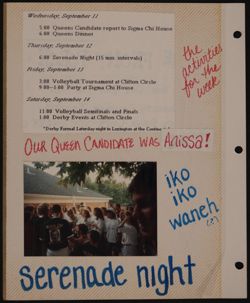 Wednesday, September 11
5:00 Queens Candidate report to Sigma Chi House
6:00 Queens Dinner
Thursday, September 12
6:00 Serenade Night (15 min. intervals)
Friday, September 13
3:00 Volleyball Tournament at Clifton Circle
9:00-1:00 Party at Sigma Chi House
Saturday, September 14
11:00 Volleyball Semifinals and Finals
1:00 Derby Events at Clifton Circle
*Derby Formal Saturday night in Lexington at the
the activities for the week
OUR QUEEN CANDIDATE WAS Anissa!
iko
iko
waneh
(?)
serenade night